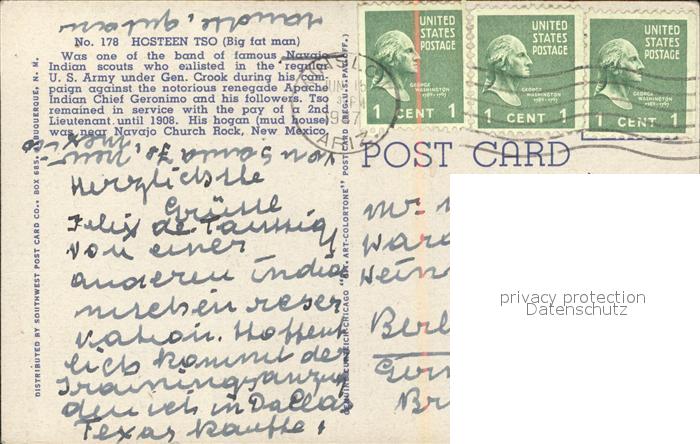 No. 178 HOSTEEN TSO (Big fat man)
Was one of the band of famous Navajo
Indian scouts who enlisted in the regular
U. S. Army under Gen. Crook during his cam-
paign against the notorious renegade Apache
Indian Chief Geronimo and his followers. Tso
remained in service with the pay of a 2nd
Lieutenant until 1908. His hogan (mud house)
was near Navajo Church Rock, New Mexico.
Herzlichste
Grüsse
Felix de Taussig
von einer
anderen india
nischen reser
vation. Hoffent
lich kommt der
Trainingsanzug
den ich in Dallas
Texas kaufte,
DISTRIBUTED BY SOUTHWEST POST CARD CO., BOX 685, ALBUQUERQUE, N. M.
GENUINE CURTEICH-CHICAGO "C.T. ART-COLORTONE" POST CARD (REG. U.S. PAT. OFF.)
UNITED
STATES
POSTAGE
GEORGE
WASHINGTON
1 CENT 1
UNITED
STATES
POSTAGE
GEORGE
WASHINGTON
1 CENT 1
UNITED
STATES
POSTAGE
GEORGE
WASHINGTON
1 CENT 1
1947
ARIZ.
POST CARD
Mr.
Berl
Germ
privacy protection
Datenschutz